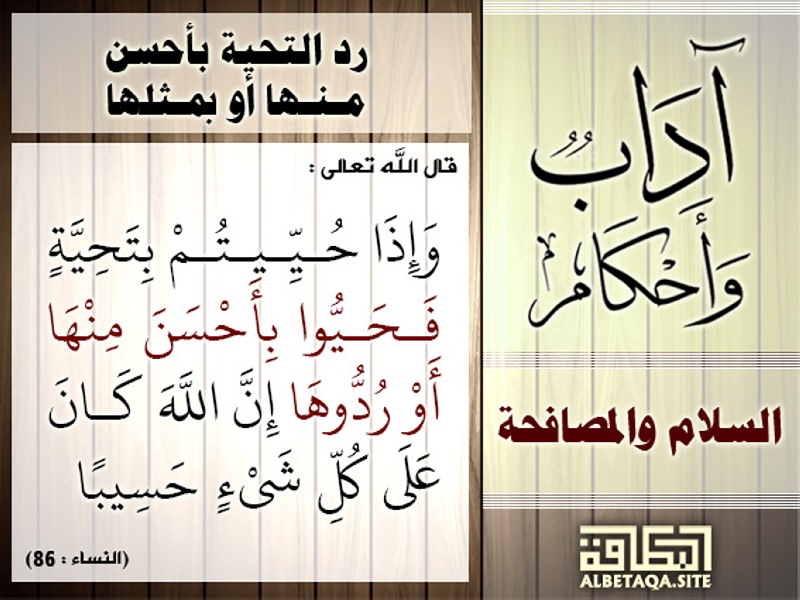 رد التحية بأحسن
منها أو بمثلها
قال الله تعالى :
وَإِذَا حُيِّيتُمْ بِتَحِيَّةٍ
فَحَيُّوا بِأَحْسَنَ مِنْهَا
أَوْ رُدُّوهَا إِنَّ اللَّهَ كَانَ
عَلَى كُلِّ شَيْءٍ حَسِيبًا
(النساء : 86)
آدَابٌ
وَأَحْكَام
السلام والمصافحة
البطاقة
ALBETAQA.SITE